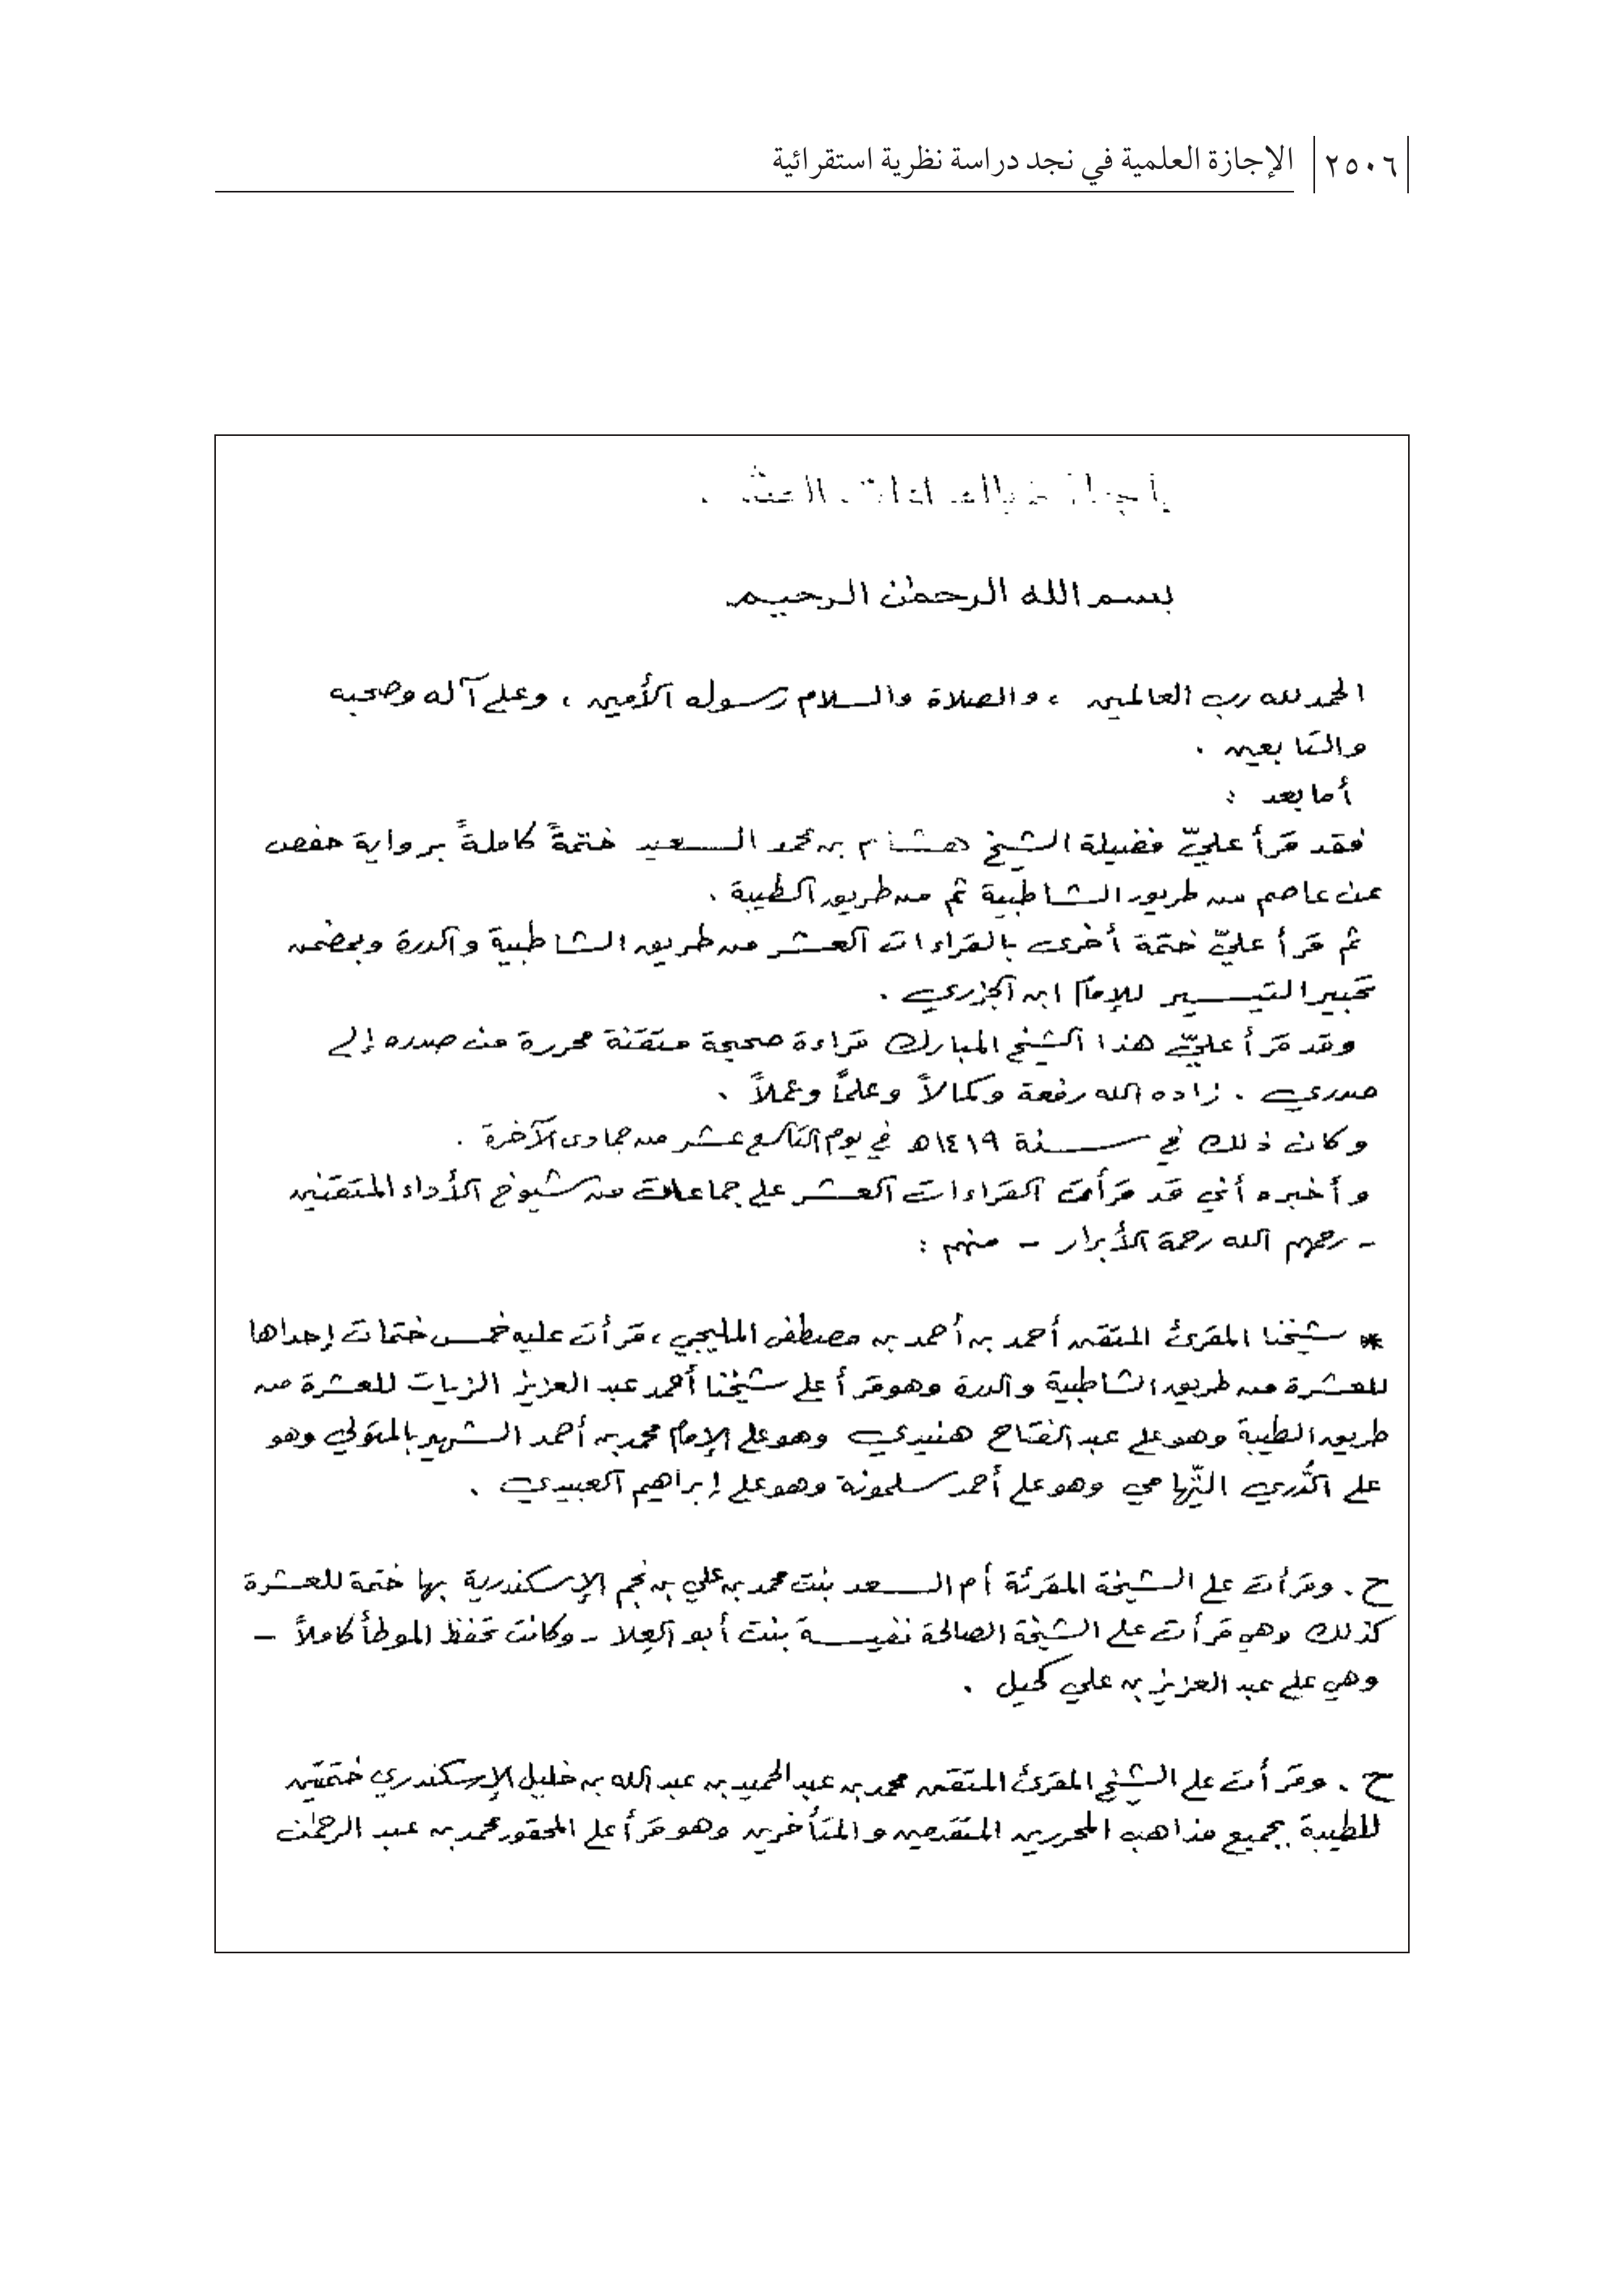 ٢٥٠٦ الإجازة العلمية في نجد دراسة نظرية استقرائية
بسم الله الرحمن الرحيم
الحمد لله رب العالمين ، والصلاة والسلام رسوله الأمين ، وعلى آله وصحبه
والتابعين .
أما بعد :
فقد قرأ عليّ فضيلة الشيخ هشام بن محمد السعيد ختمةً كاملةً برواية حفص
عن عاصم من طريق الشاطبية ثم من طريق الطيبة .
ثم قرأ عليّ ختمة أخرى بالقراءات العشر من طريق الشاطبية والدرة وبمضمن
تحبير التيسير للإمام ابن الجزري .
وقد قرأ عليّ هذا الشيخ المبارك قراءة صحيحة متقنة محررة من صدره إلى
صدري . زاده الله رفعة وكمالاً وعلماً وعملاً .
وكان ذلك في سنة ١٤١٩هـ في يوم التاسع عشر من جمادى الآخرة .
وأخبره أني قد قرأت القراءات العشر على جماعات من شيوخ الأداء المتقنين
- رحمهم الله رحمة الأبرار - منهم :
* شيخنا المقرئ المتقن أحمد بن أحمد بن مصطفى المليجي ، قرأت عليه خمس ختمات إحداها
للعشرة من طريق الشاطبية والدرة وهو قرأ على شيخنا أحمد عبد العزيز الزيات للعشرة من
طريق الطيبة وهو على عبد الفتاح هنيدي وهو على الإمام محمد بن أحمد الشهير بالمتولي وهو
على الدُّري التِّهامي وهو على أحمد سلمونة وهو على إبراهيم العبيدي .
ح . وقرأت على الشيخة المقرئة أم السعد بنت محمد بن علي بن نجم الإسكندرية بها ختمة للعشرة
كذلك وهي قرأت على الشيخة الصالحة نفيسة بنت أبو العلا - وكانت تحفظ الموطأ كاملاً -
وهي على عبد العزيز بن علي كحيل .
ح . وقرأت على الشيخ المقرئ المتقن محمد بن عبد الحميد بن عبد الله بن خليل الإسكندري ختمتين
للطيبة بجميع مذاهب المحررين المتقدمين والمتأخرين وهو قرأ على المحقق محمد بن عبد الرحمن